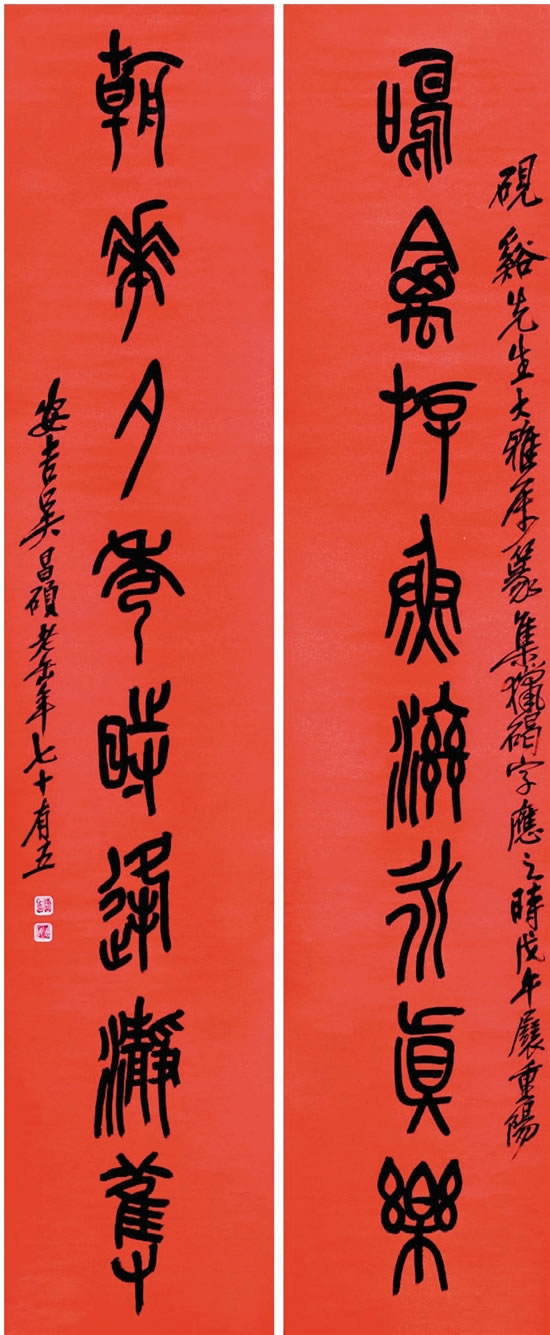 硯谿先生大雅屬篆集獵碣字應之時戊午展重陽
鳴禽斿魚滋永真樂
朝華夕秀時逢瀞
安吉吴昌碩老缶年七十有五